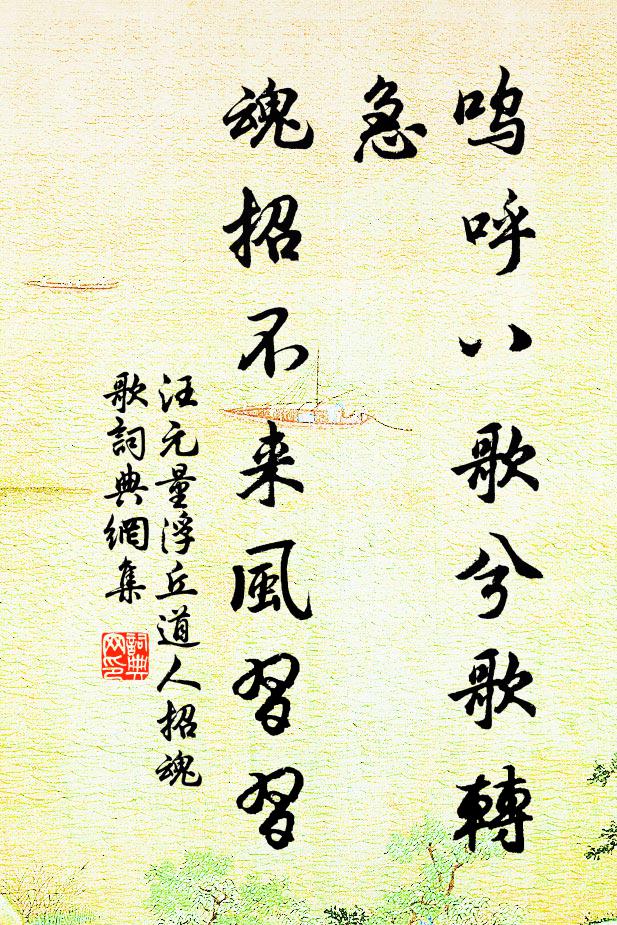 嗚呼八歌兮歌轉
急
魂招不来風習習
汪元量浮丘道人招魂
歌詞典網集
詞典
网印